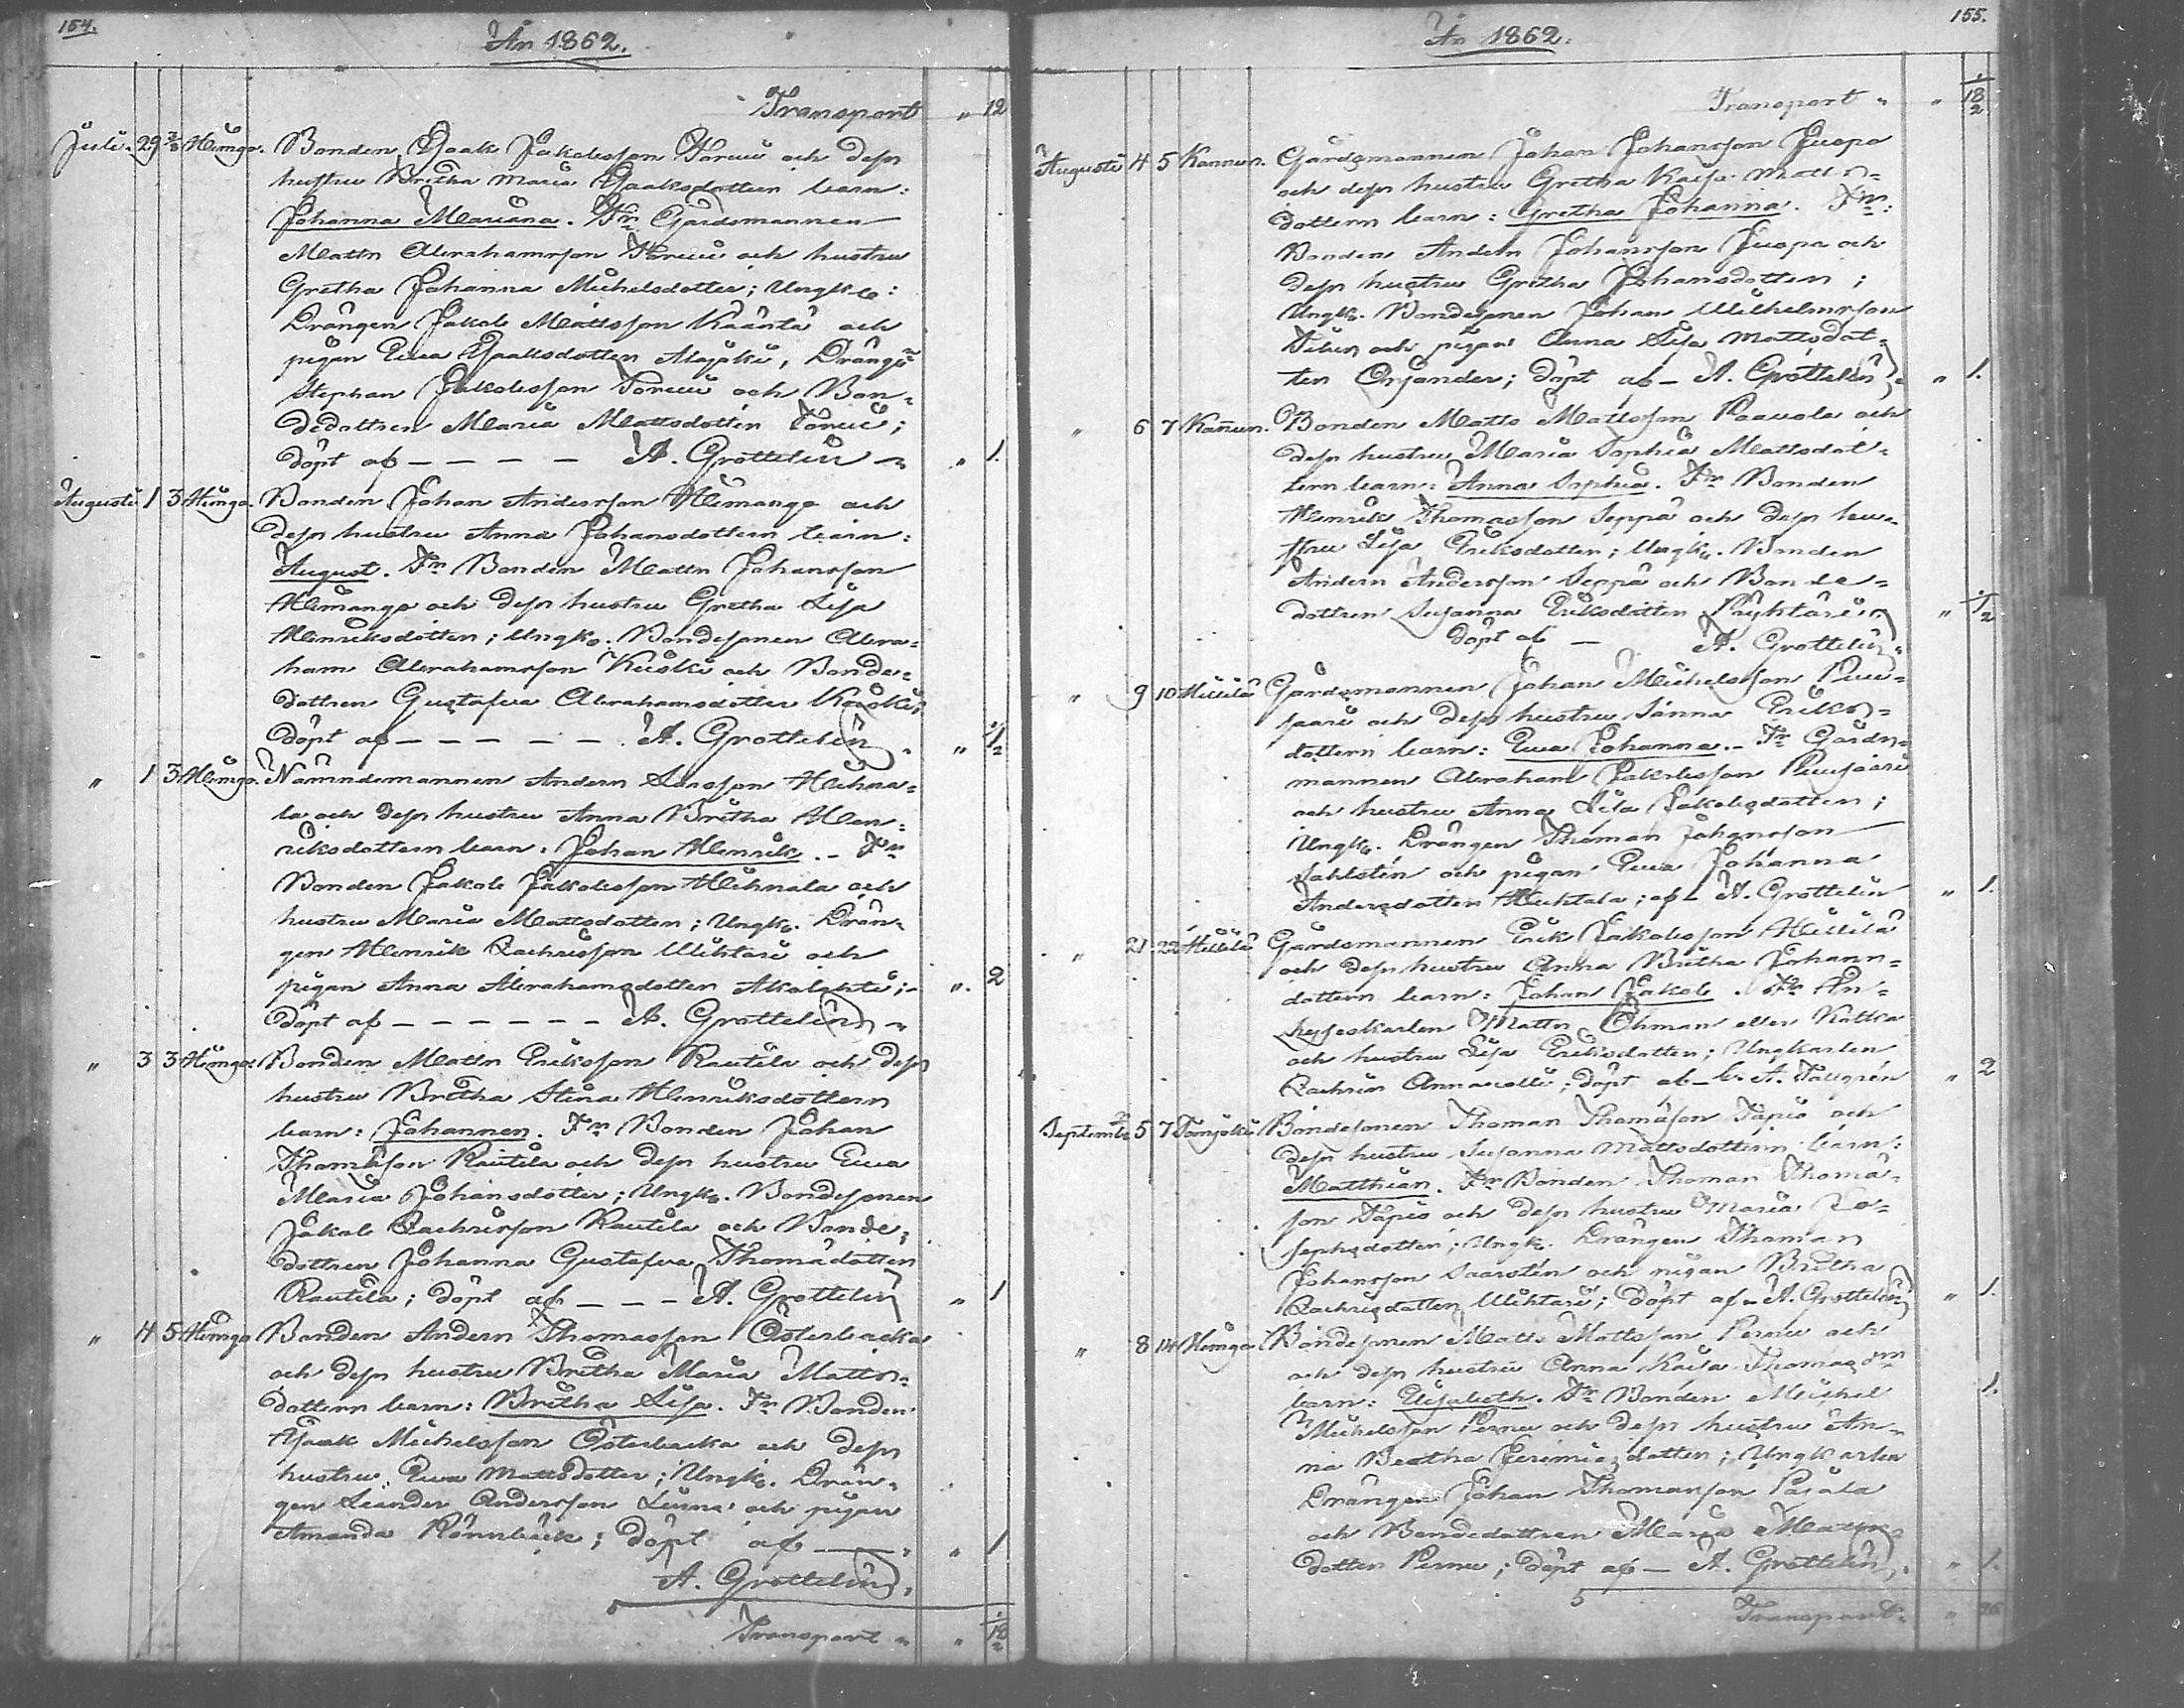 154.
År 1862.
Transport " 12
Juli. 29 Himgo. Bonden Isaak Jakobsson Torvi och dess
hustru Britha Maria Isaaksdotters barn:
Johanna Mariana. Fr. Gårdsmannen
Matts Abrahamsson Torvi och hustru
Gretha Johanna Michelsdotter; Ungk:
Drängen Jakob Mattsson Kääntä och
pigan Ewa Isaaksdotter Alajoki, Dräng:
Stephan Jakobsson Torvi och Bon-
dedottren Maria Mattsdotter Torvi;
döpt af — — — — A. Gröttelin " 1.
Augusti 1 3 Himgo. Bonden Johan Andersson Himango och
dess hustru Anna Johansdotters barn:
August. Fr Bonden Matts Johansson
Himango och dess hustru Gretha Lisa
Henriksdotter; Ungk. Bondesonen Abra-
ham Abrahamsson Kiiski och Bonde-
dottren Gustafva Abrahamsdotter Kiiski;
döpt af — — — — — A. Gröttelin. " 1/2
" 1 3 Himgo. Nämndemannen Anders Larsson Hihna-
la och dess hustru Anna Britha Hen-
riksdotters barn: Johan Henrik. - Fr
Bonden Jakob Jakobsson Hihnala och
hustru Maria Mattsdotter; Ungk. Drän-
gen Henrik Zachrisson Wihtari och
pigan Anna Abrahamsdotter Akolahti;- " 2
döpt af — — — — — — A. Gröttelin
" 3 3 Himgo. Bonden Matts Eriksson Rautila och dess
hustru Britha Stina Henriksdotters
barn: Johannes. Fr Bonden Johan
Thomasson Rautila och dess hustru Ewa
Maria Johansdotter; Ungk. Bondesonen
Jakob Zachrisson Rautila och Bonde-
dottren Johanna Gustafva Thomasdotter
Rautila; döpt af — — — A. Gröttelin " 1
" 4 5 Himgo Bonden Anders Thomasson Österbacka
och dess hustru Britha Maria Matts-
dotters barn: Britha Lisa. Fr Bonden
Isaak Michelsson Österbacka och dess
hustru Ewa Mattsdotter; Ungk. Drän-
gen Leander Andersson Linna och pigan
Amanda Rönnbäck; döpt af — " 1
A. Gröttelin.
Transport " " 18 1/2
155.
År 1862.
Transport " " 18 1/2
Augusti 4 5 Kannus. Gårdsmannen Johan Johansson Juopa
och dess hustru Gretha Kajsa Matts-
dotters barn: Gretha Johanna. Fr:
Bonden Anders Johansson Juopa och
dess hustru Gretha Johansdotter;
Ungk. Bondesonen Johan Wilhelmsson
och pigan Anna Lisa Mattsdot-
ter Orjander; döpt af — A. Gröttelin " 1.
" 6 7 Kannus. Bonden Matts Mattsson Raavola och
dess hustru Maria Sophia Mattsdot-
ters barn: Anna Sophia. Fr Bonden
Henrik Thomasson Seppä och dess hu-
stru Lisa Eriksdotter; Ungk. Bonden
Anders Andersson Seppä och Bonde-
dottren Susanna Eriksdotter " 1/2
döpt af — A. Gröttelin.
" 9 10 Hillilä Gårdsmannen Johan Michelsson Puu-
saari och dess hustru Sanna Eriks-
dotters barn: Ewa Johanna. - Fr Gårds-
mannen Abraham Jakobsson Puusaari
och hustru Anna Lisa Jakobsdotter;
Ungk. Drängen Thomas Johansson
Sahlstén och pigan Ewa Johanna
Andersdotter Huhtala; af A. Gröttelin " 1.
" 21 22 Hillilä Gårdsmannen Erik Jakobsson Hillilä
och dess hustru Anna Britha Johans-
dotters barn: Johan Jakob. Fr In-
hyseskarlen Matts Öhman eller Kattka
och hustru Lisa Eriksdotter; Ungkarlen
Zachris Annasalli; döpt af — C. A. Tallgrén " 2
September 5 7 Tomjoki Bondesonen Thomas Thomasson Tapio och
dess hustru Susanna Mattsdotters barn:
Matthias. Fr Bonden Thomas Thomas-
son Tapio och dess hustru Maria Jo-
sephsdotter; Ungk. Drängen Thomas
Johansson Saarstén och pigan Britha
Zachrisdotter Wihtari; döpt af A. Gröttelin " 1.
" 8 14 Himgo Bondesonen Matts Mattsson Pernu och
och dess hustru Anna Kaisa Thomasdrs
barn: Elisabeth. Fr Bonden Michel 1.
Michelsson Pernu och dess hustru An-
na Beatha Jeremiasdotter; Ungkarlen
Drängen Johan Thomasson Pajala
och Bondedottren Maria Matts-
dotter Pernu; döpt af — A. Gröttelin. " 1.
Transport. "